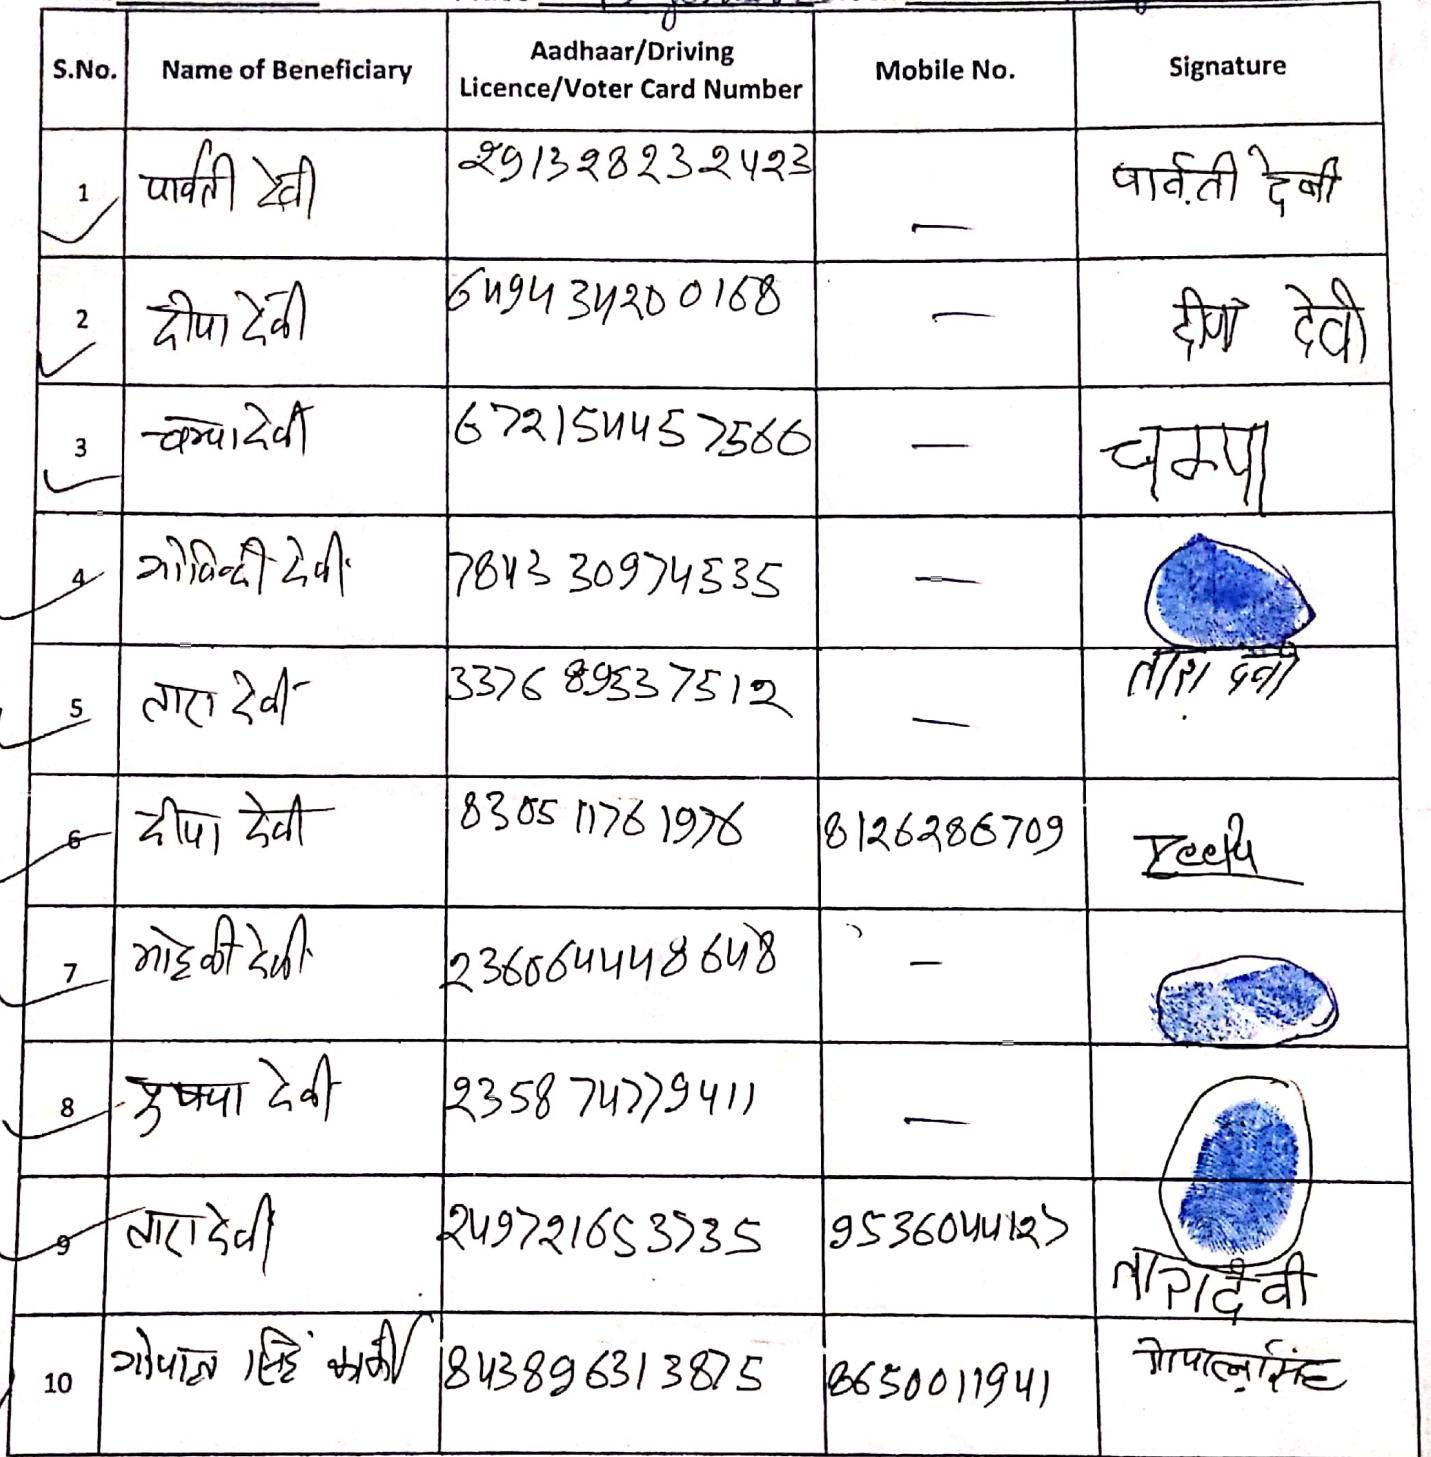 S.No. Name of Beneficiary Aadhaar/Driving Licence/Voter Card Number Mobile No. Signature
1 पार्वती देवी 291328232423 — पार्वती देवी
2 दीपा देवी 649434200168 — दीपा देवी
3 चम्पा देवी 672154457566 — चम्पा
4 गोविन्दी देवी 784330974535 —
5 तारा देवी 337689537512 — तारा देवी
6 दीपा देवी 830511761976 8126286709
7 देवी 236064448648 —
8 देवी 235874779411 —
9 तारा देवी 249721653735 9536044127 तारा देवी
10 गोपाल सिंह कार्की 843896313875 8650011941 गोपाल सिंह